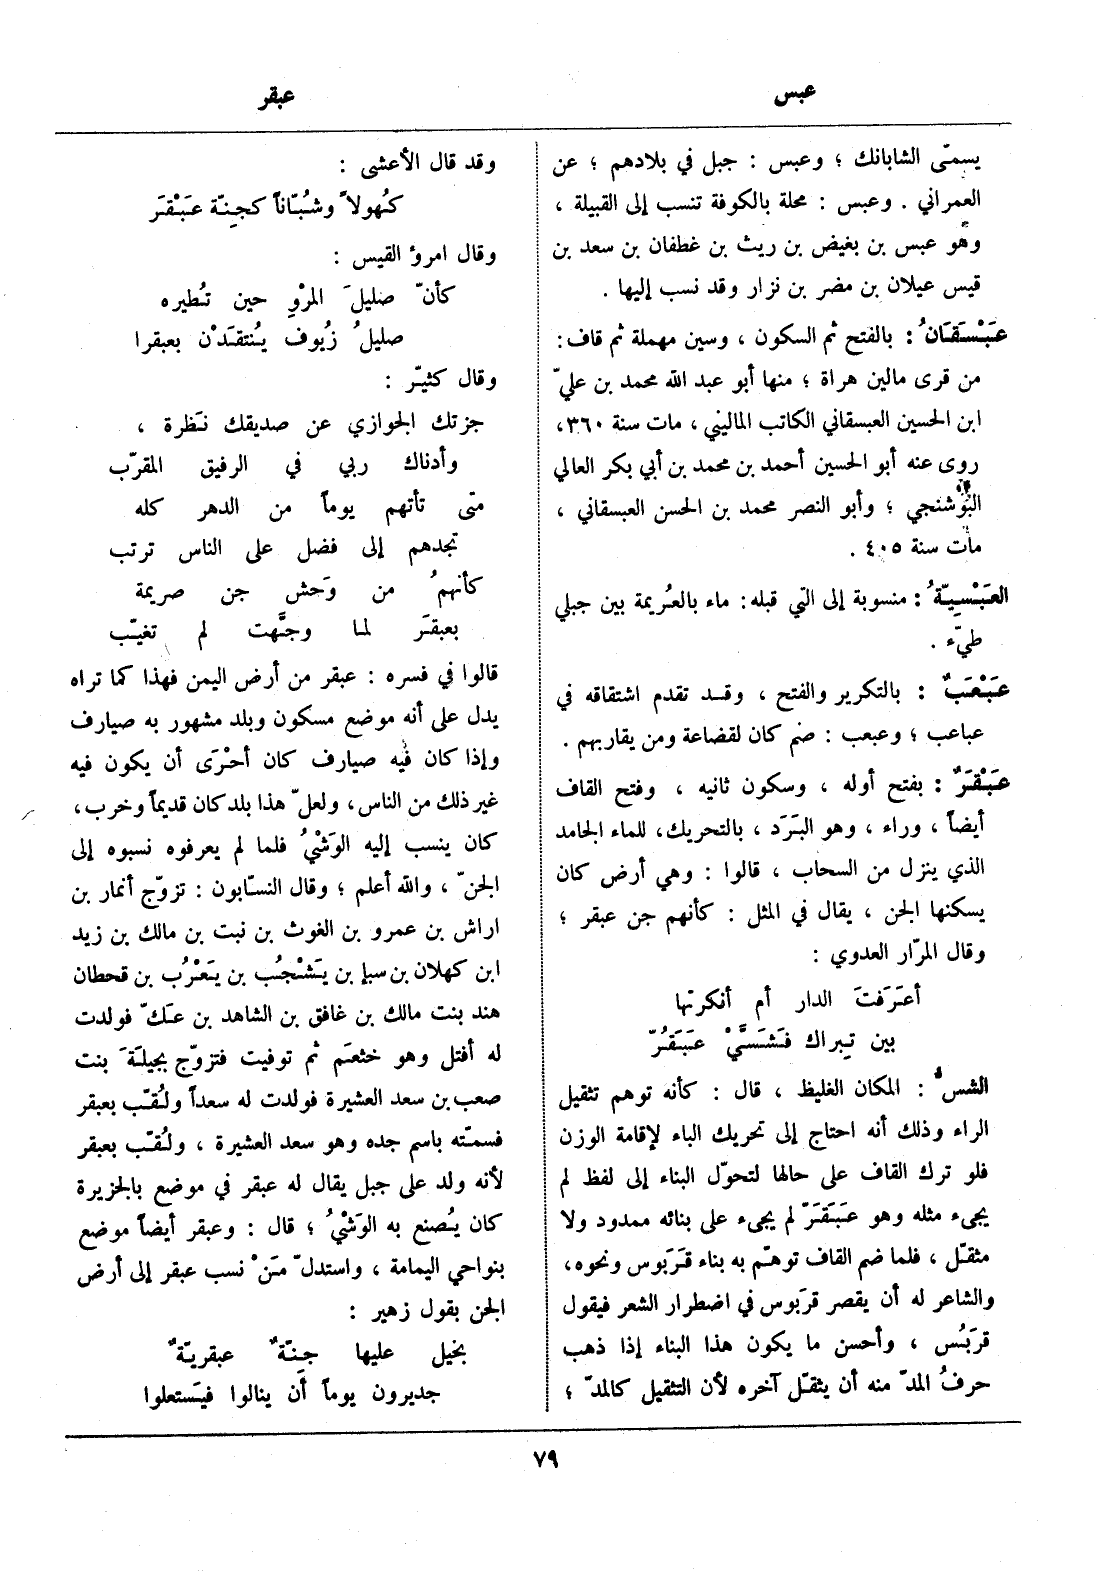 عبس
عبقر
يسمّى الشابانك ؛ وعبس : جبل في بلادهم ؛ عن
العمراني . وعبس : محلة بالكوفة تنسب إلى القبيلة ،
وهو عبس بن بغيض بن ريث بن غطفان بن سعد بن
قيس عيلان بن مضر بن نزار وقد نسب إليها .
عَبْسَقَانُ : بالفتح ثم السكون ، وسين مهملة ثم قاف :
من قرى مالين هراة ؛ منها أبو عبد الله محمد بن عليّ
ابن الحسين العبسقاني الكاتب الماليني ، مات سنة ٣٦٠ ،
روى عنه أبو الحسين أحمد بن محمد بن أبي بكر العالي
البُوشنجي ؛ وأبو النصر محمد بن الحسن العبسقاني ،
مات سنة ٤٠٥ .
العَبْسِيّةُ : منسوبة إلى التي قبله : ماء بالعُريمة بين جبلي
طيّء .
عَبْعَبٌ : بالتكرير والفتح ، وقد تقدم اشتقاقه في
عباعب ؛ وعبعب : صنم كان لقضاعة ومن يقاربهم .
عَبْقَرٌ : بفتح أوله ، وسكون ثانيه ، وفتح القاف
أيضاً ، وراء ، وهو البَرَد ، بالتحريك ، للماء الجامد
الذي ينزل من السحاب ، قالوا : وهي أرض كان
يسكنها الجن ، يقال في المثل : كأنهم جن عبقر ؛
وقال المرّار العدوي :
أعَرَفتَ الدار أم أنكرتها
بين تِبراك فَشَسَّيْ عَبَقُرّ
الشسّ : المكان الغليظ ، قال : كأنه توهم تثقيل
الراء وذلك أنه احتاج إلى تحريك الباء لإقامة الوزن
فلو ترك القاف على حالها لتحوّل البناء إلى لفظ لم
يجىء مثله وهو عَبَقَرّ لم يجىء على بنائه ممدود ولا
مثقّل ، فلما ضم القاف توهّم به بناء قَرَبوس ونحوه ،
والشاعر له أن يقصر قرَبوس في اضطرار الشعر فيقول
قرَبُس ، وأحسن ما يكون هذا البناء إذا ذهب
حرفُ المدّ منه أن يثقّل آخره لأن التثقيل كالمدّ ؛
وقد قال الأعشى :
كُهولاً وشُبّاناً كجِنّة عَبْقَر
وقال امرؤ القيس :
كأنّ صليلَ المرْوِ حين تُطيره
صليلُ زُيوف يُنتقَدْن بعبقرا
وقال كثيّر :
جزتك الجوازي عن صديقك نَظرة ،
وأدناك ربي في الرفيق المقرّب
متى تأتهم يوماً من الدهر كله
تجدهم إلى فضل على الناس ترتب
كأنهمُ من وَحش جن صريمة
بعبقَر لما وجَّهت لم تغيّب
قالوا في فسره : عبقر من أرض اليمن فهذا كما تراه
يدل على أنه موضع مسكون وبلد مشهور به صيارف
وإذا كان فيه صيارف كان أحْرَى أن يكون فيه
غير ذلك من الناس ، ولعلّ هذا بلد كان قديماً وخرب ،
كان ينسب إليه الوَشْيُ فلما لم يعرفوه نسبوه إلى
الجنّ ، والله أعلم ؛ وقال النسّابون : تزوّج أنمار بن
اراش بن عمرو بن الغوث بن نبت بن مالك بن زيد
ابن كهلان بن سبإ بن يَشْجُب بن يَعْرُب بن قحطان
هند بنت مالك بن غافق بن الشاهد بن عَكّ فولدت
له أفتل وهو خثعَم ثم توفيت فتزوّج بجيلَةَ بنت
صعب بن سعد العشيرة فولدت له سعداً ولُقّب بعبقر
فسمّته باسم جده وهو سعد العشيرة ، ولُقّب بعبقر
لأنه ولد على جبل يقال له عبقر في موضع بالجزيرة
كان يُصنع به الوَشْيُ ؛ قال : وعبقر أيضاً موضع
بنواحي اليمامة ، واستدلّ مَنْ نسب عبقر إلى أرض
الجن بقول زهير :
بخيل عليها جِنّةٌ عبقريّةٌ
جديرون يوماً أن ينالوا فيَستعلوا
٧٩